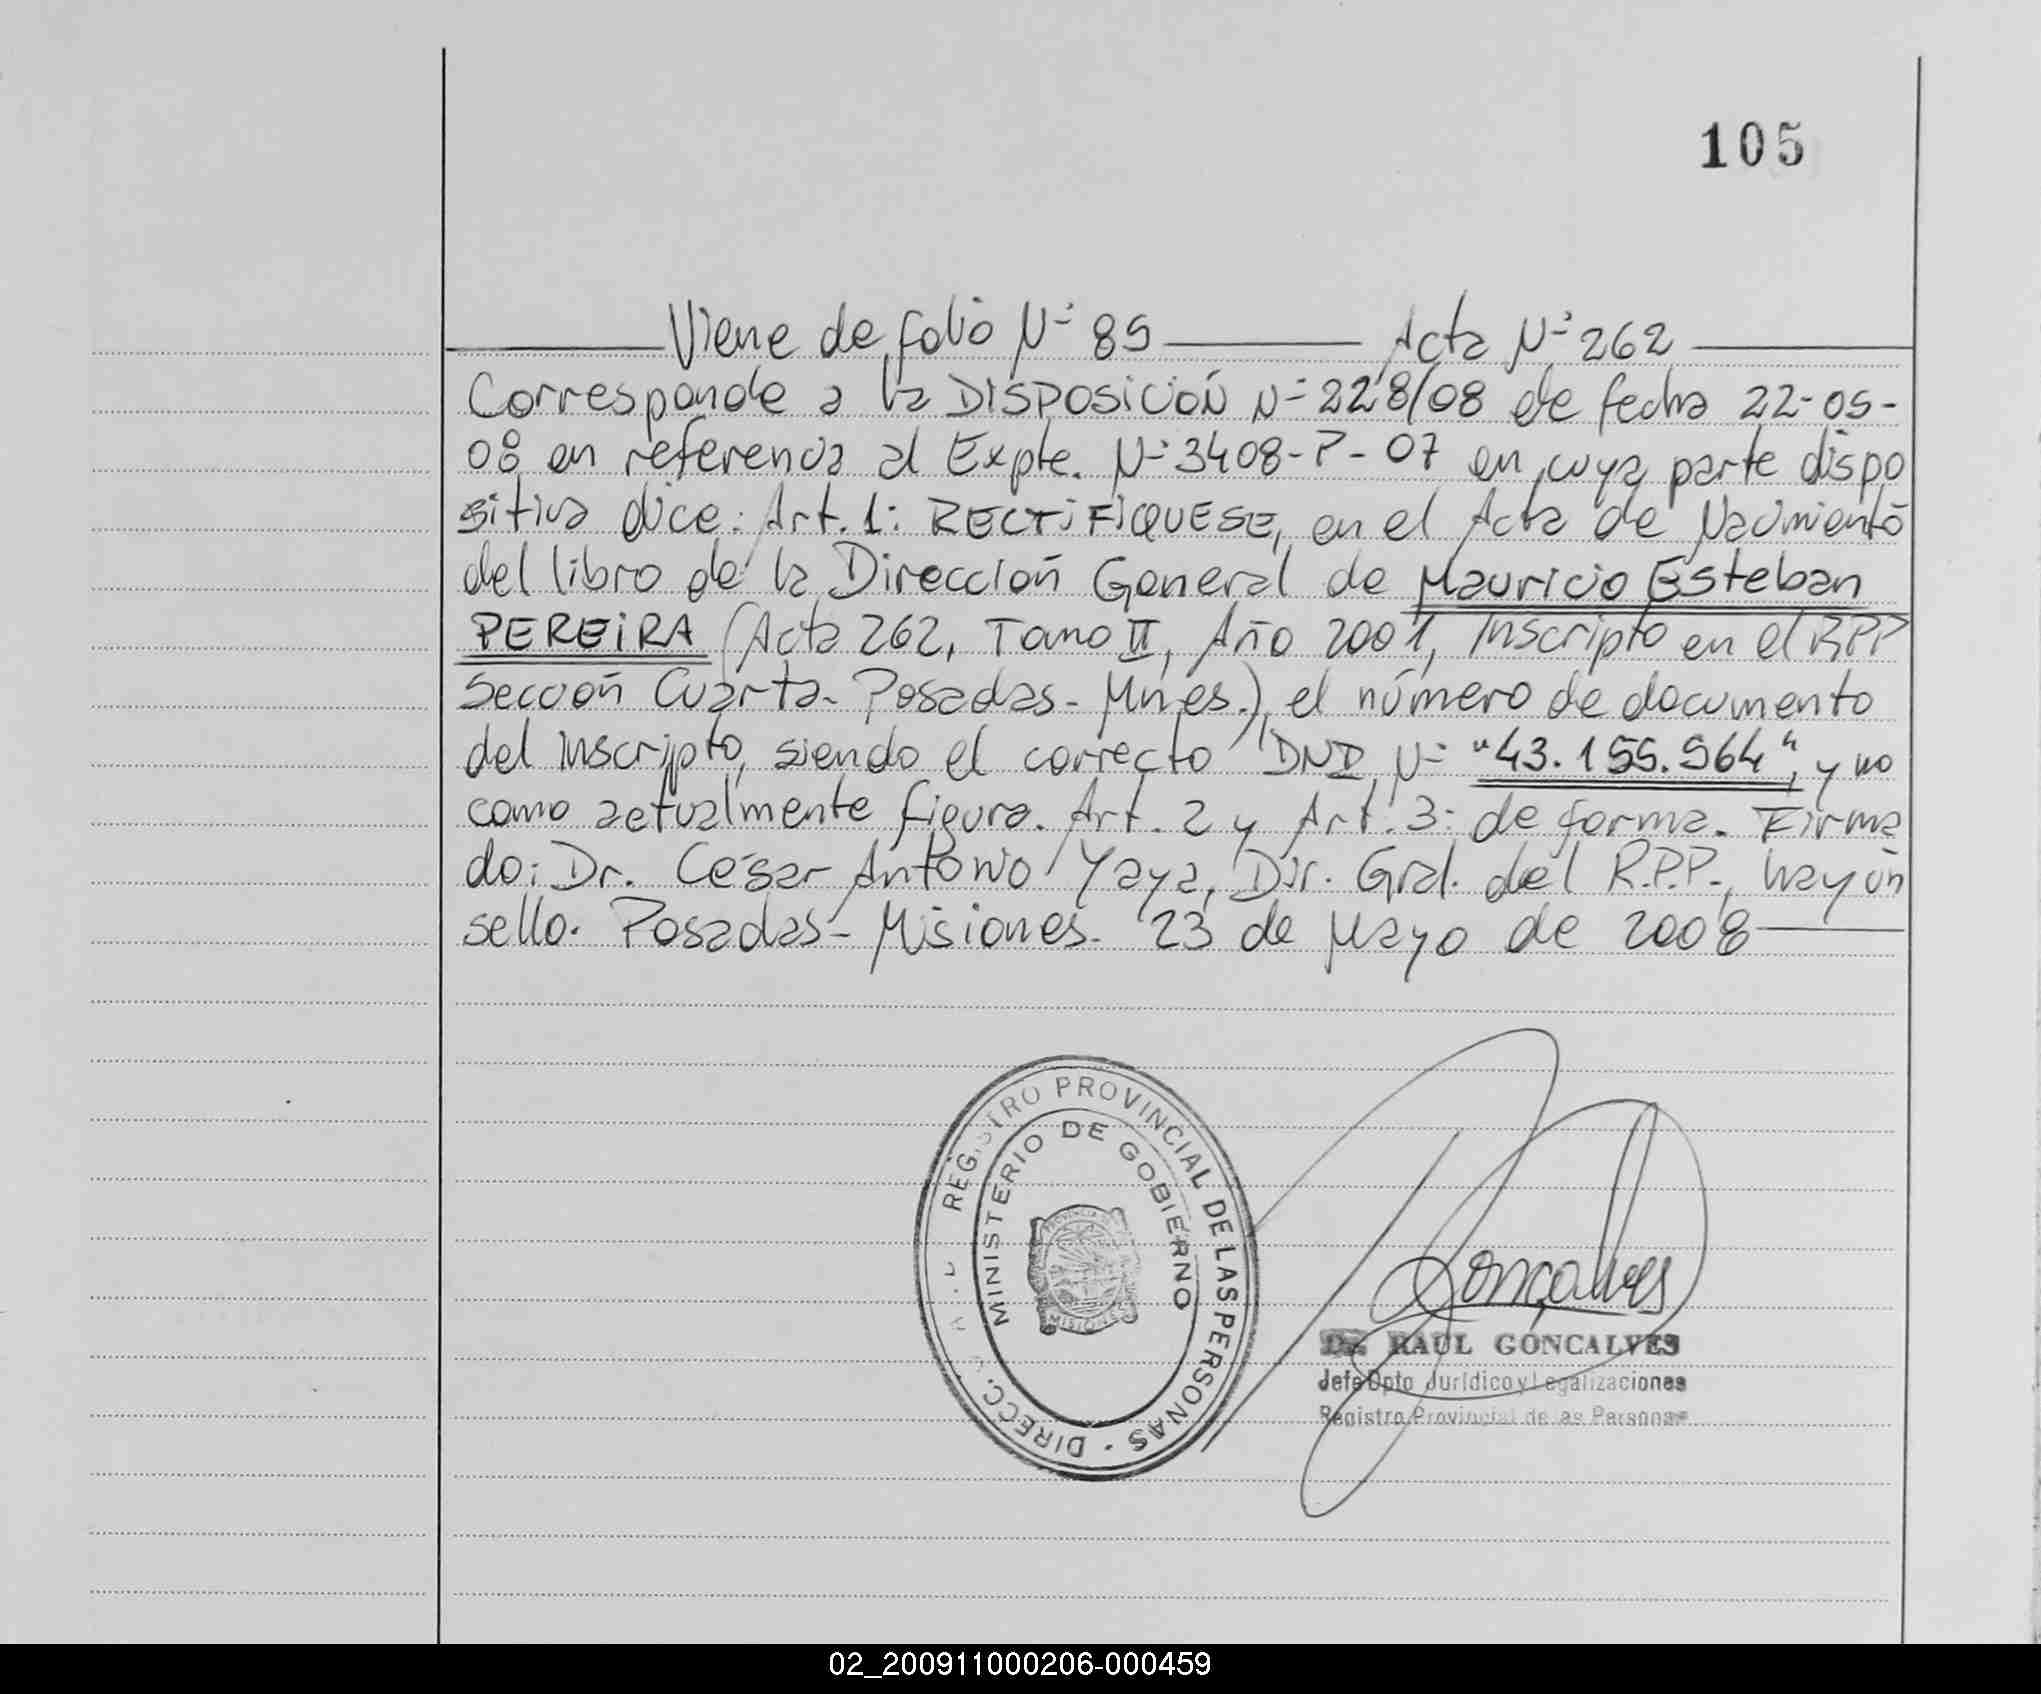 105
Viene de folio Nº 85 Acta Nº 262
Corresponde a la DISPOSICIÓN Nº 228/08 de fecha 22-05-
08 en referencia al Expte. Nº 3408-P-07 en cuya parte dispo
sitiva dice: Art. 1: RECTIFIQUESE, en el Acta de Nacimiento
del libro de la Dirección General de Mauricio Esteban
PEREIRA (Acta 262, Tomo II, Año 2001, Inscripto en el RPP
Sección Cuarta - Posadas - Mnes.), el número de documento
del inscripto, siendo el correcto DND Nº "43.155.564", y no
como actualmente figura. Art. 2 y Art. 3: de forma. Firma
do: Dr. César Antonio Yaya, Dir. Gral. del R.P.P., hay un
sello. Posadas - Misiones. 23 de Mayo de 2008
REGISTRO PROVINCIAL DE LAS PERSONAS - DIRECC.
MINISTERIO DE GOBIERNO
PROVINCIA DE
MISIONES
Gonçalves
Dr. RAUL GONCALVES
Jefe Dpto Jurídico y Legalizaciones
Registro Provincial de las Personas
02_200911000206-000459